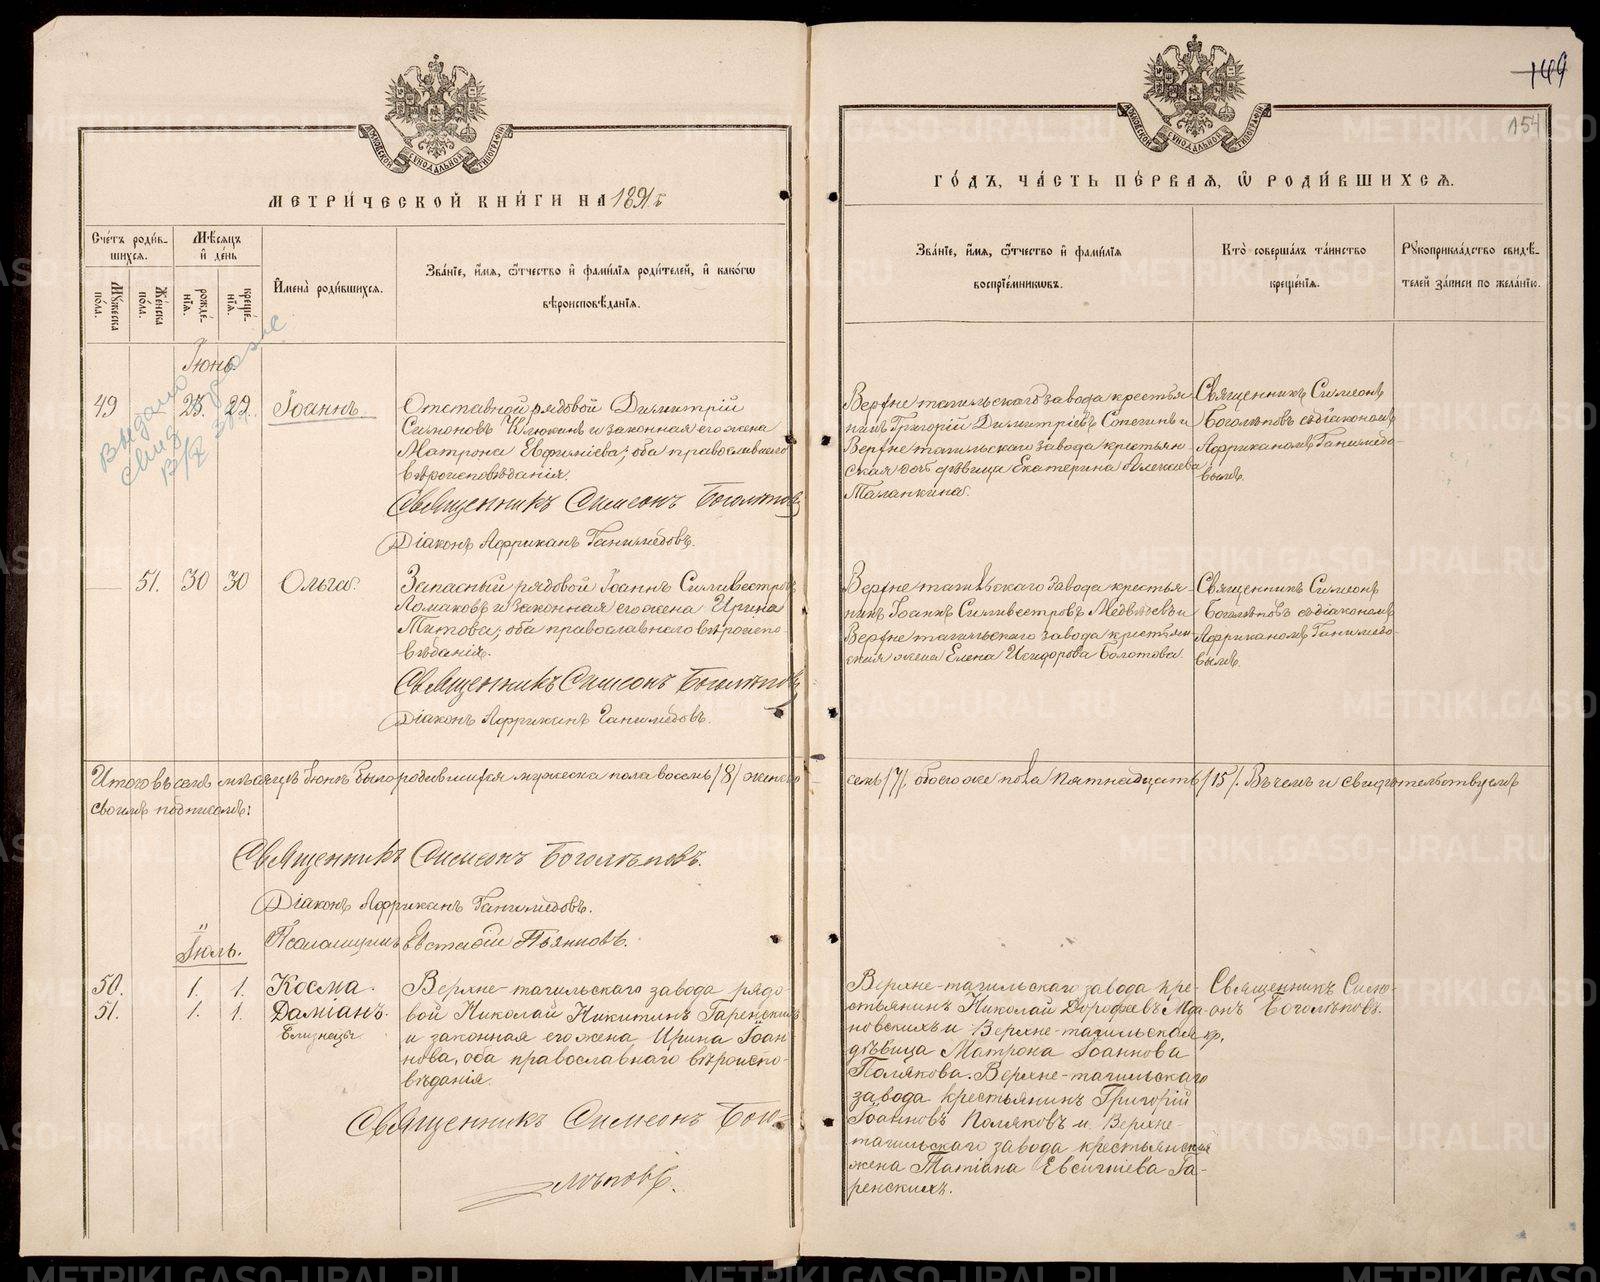 149
154
МОСКОВСКОЙ СѴНОДАЛЬНОЙ ТИПОГРАФІИ
МОСКОВСКОЙ СѴНОДАЛЬНОЙ ТИПОГРАФІИ
МЕТРИ́ЧЕСКОЙ КНИ́ГИ НА 1891 г.
ГО́ДЪ, ЧА́СТЬ ПЕ́РВАЯ, Ѽ РОДИ́ВШИХСЯ.
Сче́тъ роди́в-
шихся.
Му́жеска по́ла.
Же́нска по́ла.
Мѣ́сяцъ
и҆ де́нь
рожде́-
нїѧ.
креще́-
нїѧ.
И҆мена̀ роди́вшихся.
Зва́нїе, и҆́мѧ, ѻ҆́тчество и҆ фами́лїѧ роди́телей, и҆ како́гѡ
вѣроисповѣ́данїѧ.
Зва́нїе, и҆́мѧ, ѻ҆́тчество и҆ фами́лїѧ
воспрїе́мниковъ.
Кто̀ соверша́лъ та́инство
креще́нїѧ.
Рꙋкоприкла́дство свидѣ́-
телей за́писи по жела́нїю.
Іюнь.
Выдано
свид
49
25. 29.
Іоаннъ.
Отставной рядовой Димитрій
Симоновъ Клюкинъ и законная его жена
Матрона Евфиміева; оба православнаго
вѣроисповѣданія.
Священникъ Симеонъ Боголѣповъ
Діаконъ Африканъ Ганимедовъ.
Верхне тагильскаго завода крестья-
нинъ Григорій Димитріевъ Сопегинъ и
Верхне тагильскаго завода крестьян-
ская дочь дѣвица Екатерина Алексеева
Маланкина.
Священникъ Симеонъ
Боголѣповъ съ діакономъ
Африканомъ Ганимедо-
вымъ.
51. 30 30
Ольга.
Запасный рядовой Іоаннъ Силивестровъ
Ломаковъ и законная его жена Ирина
Титова; оба православнаго вѣроиспо-
вѣданія.
Священникъ Симеонъ Боголѣповъ
Діаконъ Африканъ Ганимедовъ.
Верхне тагильскаго завода крестья-
нинъ Іоаннъ Силивестровъ Медвѣевъ и
Верхне тагильскаго завода крестьян-
ская жена Елена Исидорова Болотова.
Священникъ Симеонъ
Боголѣповъ съ діакономъ
Африканомъ Ганимедо-
вымъ.
Итого въ семъ мѣсяцѣ Іюнѣ было родившихся мужеска пола восемь /8/ женска
семь /7/. обоего же пола пятнадцать /15/. Въ чемъ и свидѣтельствуемъ
своимъ подписомъ:
Священникъ Симеонъ Боголѣповъ.
Діаконъ Африканъ Ганимедовъ.
Псаломщикъ Евстафій Пьянковъ.
Іюль.
50. 1. 1. Косма.
51. 1. 1. Даміанъ.
Близнецы
Верхне-тагильскаго завода рядо-
вой Николай Никитинъ Гаренскихъ
и законная его жена Ирина Іоан-
нова, оба православнаго вѣроиспо-
вѣданія.
Священникъ Симеонъ Бого-
лѣповъ.
Верхне-тагильскаго завода кре-
стьянинъ Николай Дорофеевъ Ма-
новскихъ и Верхне-тагильская кр.
дѣвица Матрона Іоаннова
Полякова. Верхне-тагильскаго
завода крестьянинъ Григорій
Іоанновъ Поляковъ и Верхне-
тагильскаго завода крестьянская
жена Татіана Евсигніева Га-
ренскихъ.
Священникъ Симе-
онъ Боголѣповъ.
METRIKI.GASO-URAL.RU